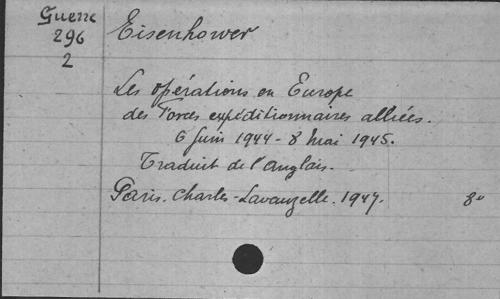 Guerre
296
2
Eisenhower
Les opérations en Europe
des Forces expéditionnaires alliées.
6 Juin 1944 - 8 Mai 1945.
Traduit de l'anglais.
Paris. Charles-Lavauzelle. 1947. 8°